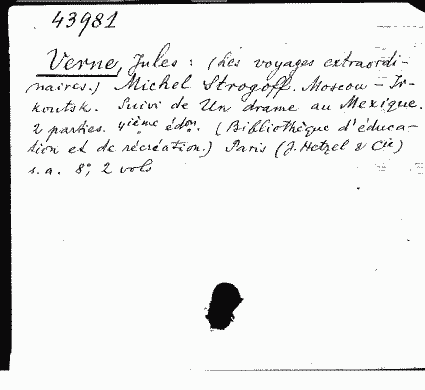 43981
Verne, Jules: (Les voyages extraordi-
naires.) Michel Strogoff. Moscou – Ir-
koutsk. Suivi de Un drame au Mexique.
2 parties. 4ième édon. (Bibliothèque d'éduca-
tion et de récréation.) Paris (J. Hetzel & Cie)
s.a. 8°, 2 vols